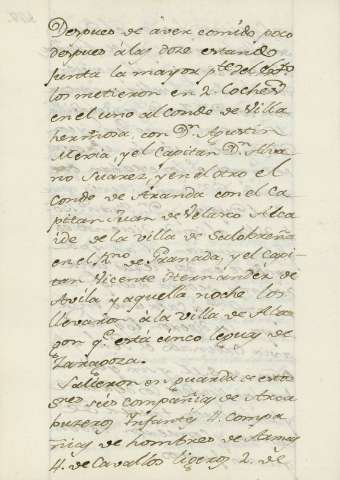 Despues de aver comido poco
despues à las doze estando
junta la mayor p.te del exto
los metieron en 2. Coches
en el uno al Conde de Villa
hermosa, con D.n Agustin
Mexia, y el Capitan D.n Alva
ro Suarez, y en el otro el
Conde de Aranda con el Ca
pitan Juan de Velasco Alca
ide de la villa de Salobreña
en el R.no de Granada, y el Capi
tan Vicente Hernandez de
Avila, y aquella noche los
llevaron à la villa de Ala
gon q.e està cinco leguas de
Zaragoza.
Salieron en guarda de estos
Sres seis compañias de Arca
buzeros Infantes 4. Compa
ñias de hombres de Armas
4. de Cavallos ligeros 2. de